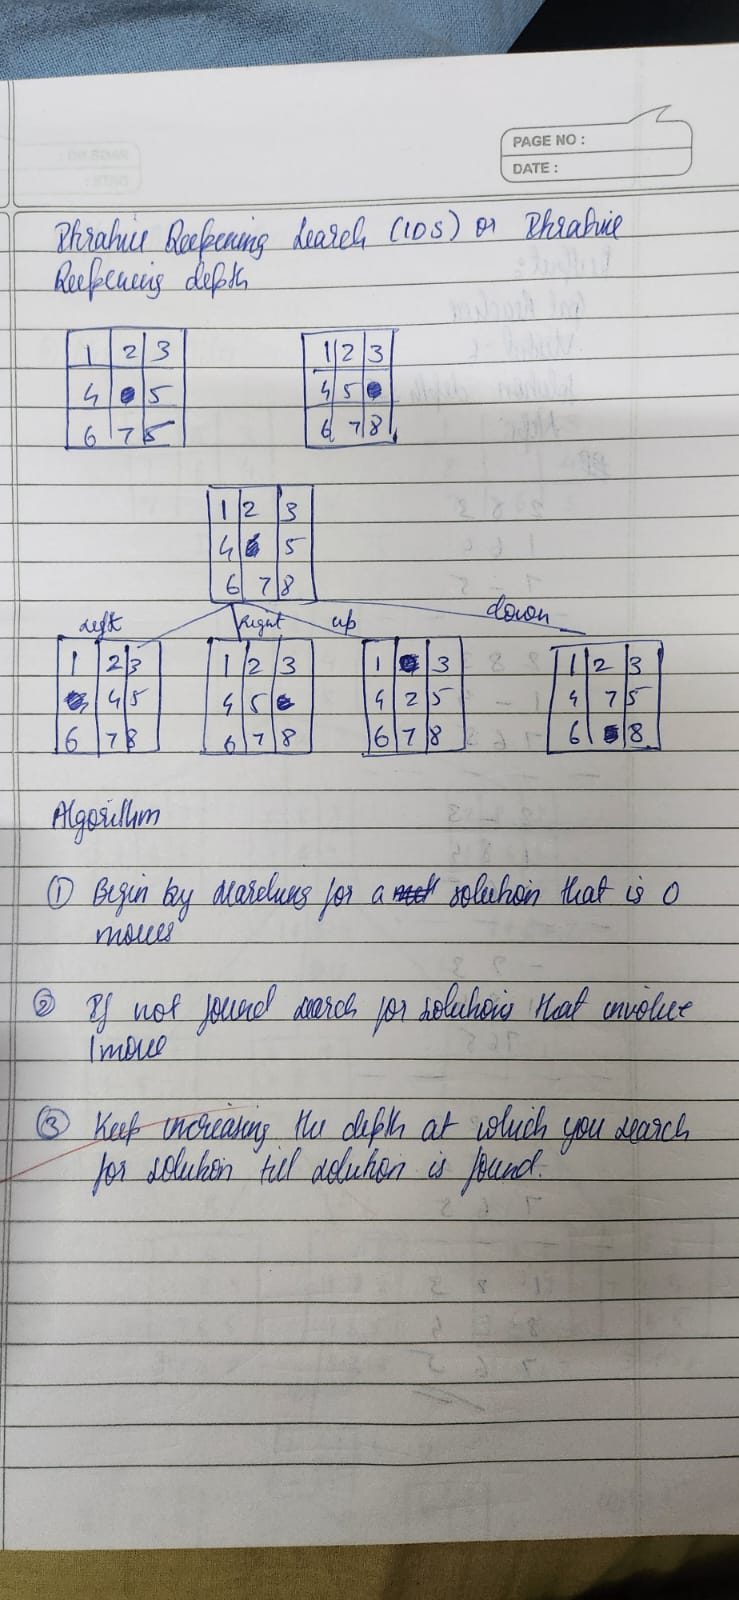 PAGE NO :
DATE :
Iterative Deepening Search (IDS) or Iterative
Deepening depth
1 2 3
4 5
6 7 5
1 2 3
4 5
6 7 8
1 2 3
4 5
6 7 8
left right up down
1 2 3
4 5
6 7 8
1 2 3
4 5
6 7 8
1 3
4 2 5
6 7 8
1 2 3
4 7 5
6 8
Algorithm
① Begin by searching for a solution that is 0
moves
② If not found search for solutions that involve
1 move
③ Keep increasing the depth at which you search
for solution till solution is found.